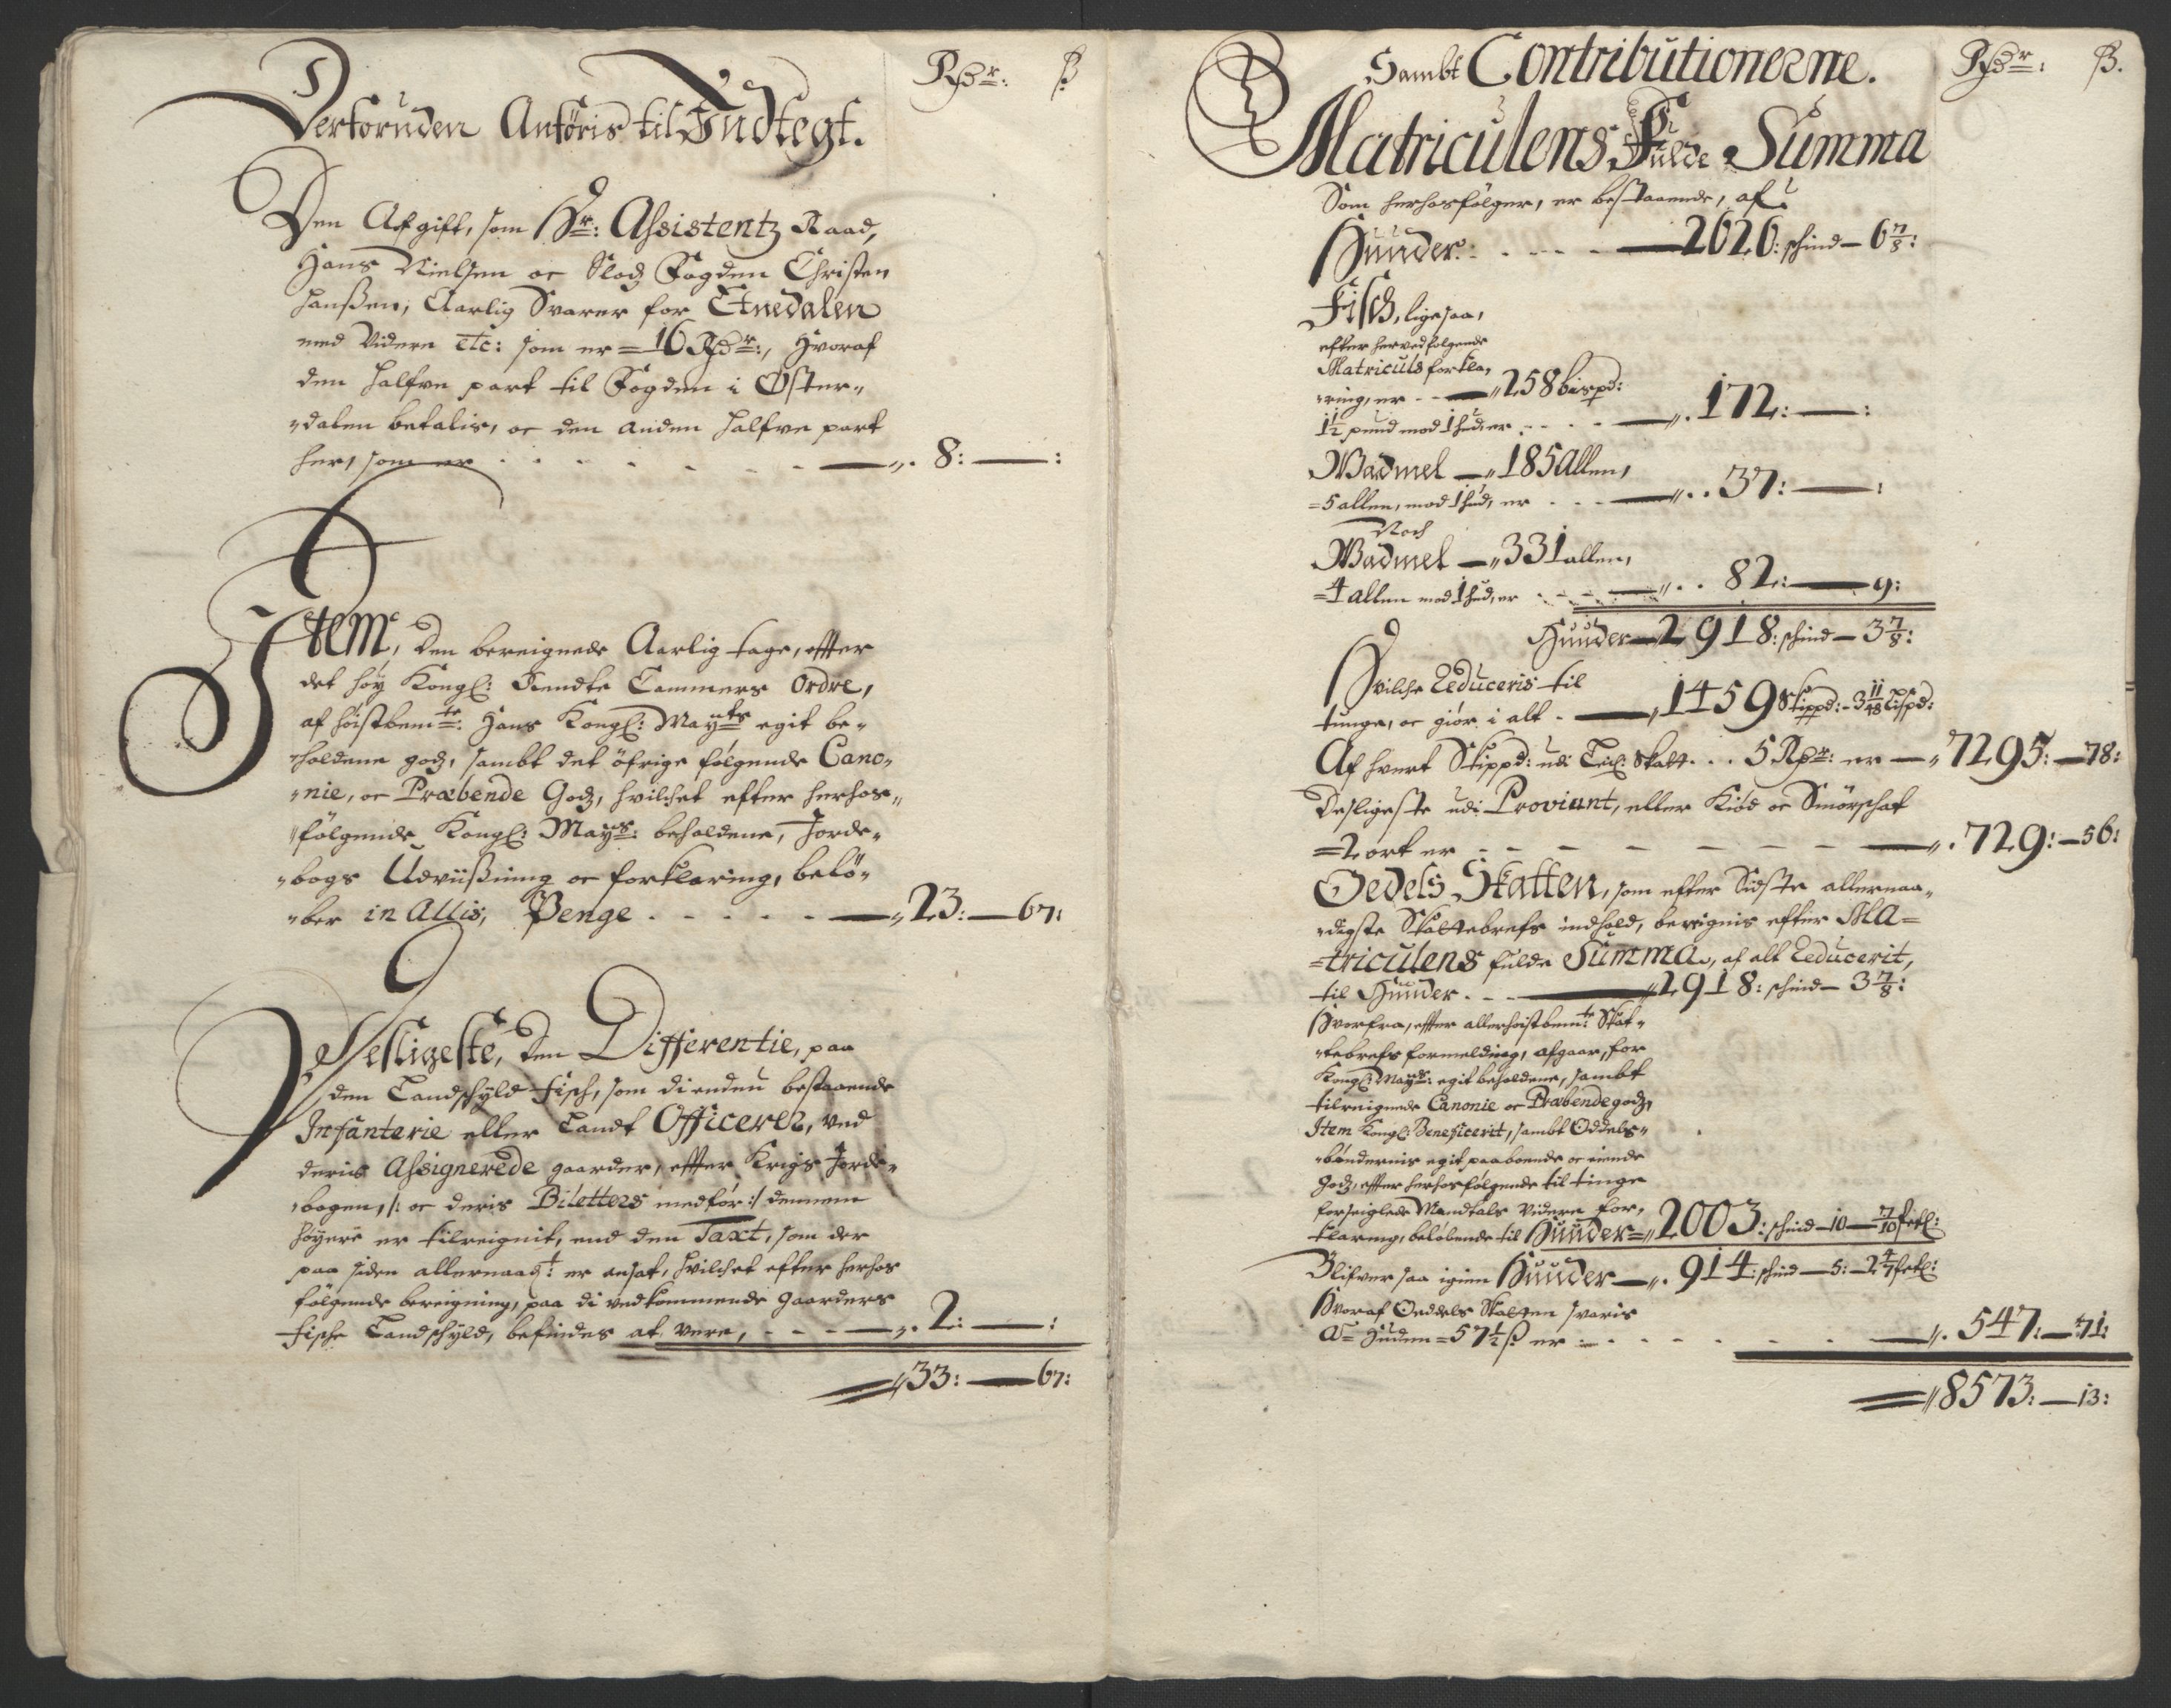 Rdr: ß
Derforuden Anföris til Indtegt.
Den Afgift, som Hr: Assistentz Raad,
Hans Nielsen oc Slodz Fogden Christen
Hanßen, Aarlig Svarer for Etnedalen
med Videre etc: som er = 16 Rdr:, Hvoraf
den halfve part til Fogden i Öster-
dalen betalis, oc den anden halfve part
her, som er - - - 8: — :
Item, den bereignede Aarlig tage, effter
det höy Kongl: Rendte Cammers Ordre,
af höistbemte: Hans Kongl: Mayts egit be-
holdene godz, sambt det öfrige fölgende Cano-
nie, oc Præbende Godz, hvilchet efter herhos-
fölgende Kongl: Mays: beholdene, Jorde-
bogs Udviißning oc forklaring, belö-
ber in Allis, Penge - - - 23: — 67:
Desligeste, den Differentie, paa
den Landschyld fisch, som di endnu bestaaende
Infanterie eller Landt Officerer, ved
deris Assignerede gaarder, effter Krigs Jorde-
bogen, /: oc deris Biletters medför :/ dennem
höyere er tilreignit, end den Taxt, som der
paa siden allernaadt: er ansat, hvilchet efter herhos
fölgende bereigning, paa di vedkommende gaarders
fische Landschyld, befindes at vere, - - - 2: — :
33: — 67:
Sambt Contributionerne. Rdr: ß.
Matriculens Fulde Summa
Som herhosfölger, er bestaaende, af
Huuder: - - - 2626: schind — 6 7/8:
Fisch, ligesaa,
efter hervedfölgende
Matriculs forkla,
ring, er - - 258 bispd:
1 1/2 pund mod 1 hud, er - - - 172: — :
Wadmel — 185 Allen,
= 5 allen, mod 1 hud, er - - - 37: — :
Noch
Wadmel — 331 allen,
= 4 allen mod 1 hud, er - - - 82: — 9:
Huuder — 2918: schind — 3 7/8:
Hvilche Reduceris til
tunge, oc giör i alt - 1459 Skippd: - 3 11/48 Lispd:
Af hvert Skippd: udi Leil: Skatt - - - 5 Rdr: er — 7295: — 78:
Desligeste udi Proviant, eller Kiöd oc Smörschat
= 2 ort er - - - 729: — 56:
Oedels Skatten, som efter Sidste allernaa-
digste Skattebrefs indhold, bereignis efter Ma-
triculens fulde Summa, af alt Reducerit,
til Huuder - - - 2918: schind — 3 7/8:
Hvorfra, effter allerhöistbemte: Skat-
tebrefs formelding, afgaar, for
Kongl: Mays: egit beholdene, sambt
tilreignede Canonie oc Præbende godz,
Item Kongl: Beneficerit, sambt Oddels-
böndernis egit paaboende oc eiende
Godz, effter herhosfölgende til tinge
forseiglede Mandtals Videre for,
klaring, belöbende til Huuder = 2003: schind — 10 — 7/10 fetl:
Blifver saa igien Huuder — 914: schind — 5: — 2 4/7 fetl:
Hvoraf Oeddels Skatten svaris
Af Huden = 57 1/2 ß er - - - 547: — 71:
8573: — 13: